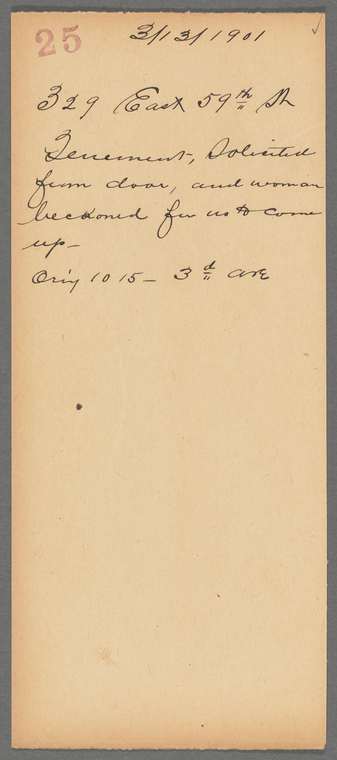 25 3/13/1901
329 East 59th St
Tenement, Solicited
from door, and woman
beckoned for us to come
up—
Ory 1015— 3d ave